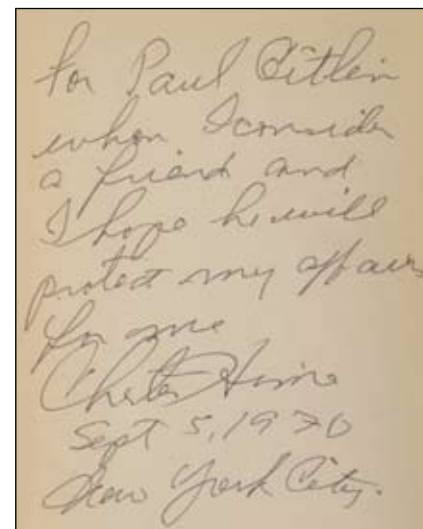 For Paul Gitlin
whom I consider
a friend and
I hope he will
protect my affairs
for me
Chester Himes
Sept 5, 1970
New York City.